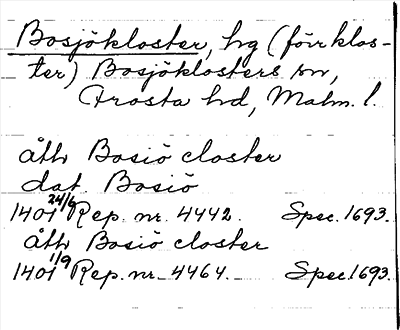 Bosjökloster, hg (förr klos-
ter) Bosjöklosters sn,
Frosta hd, Malm. l.
åth Bosiö closter
dat Bosiö
1401 24/6 Rep. nr. 4442. Spec. 1693.
åth Bosiö closter
1401 1/9 Rep. nr. 4464. Spec. 1693.